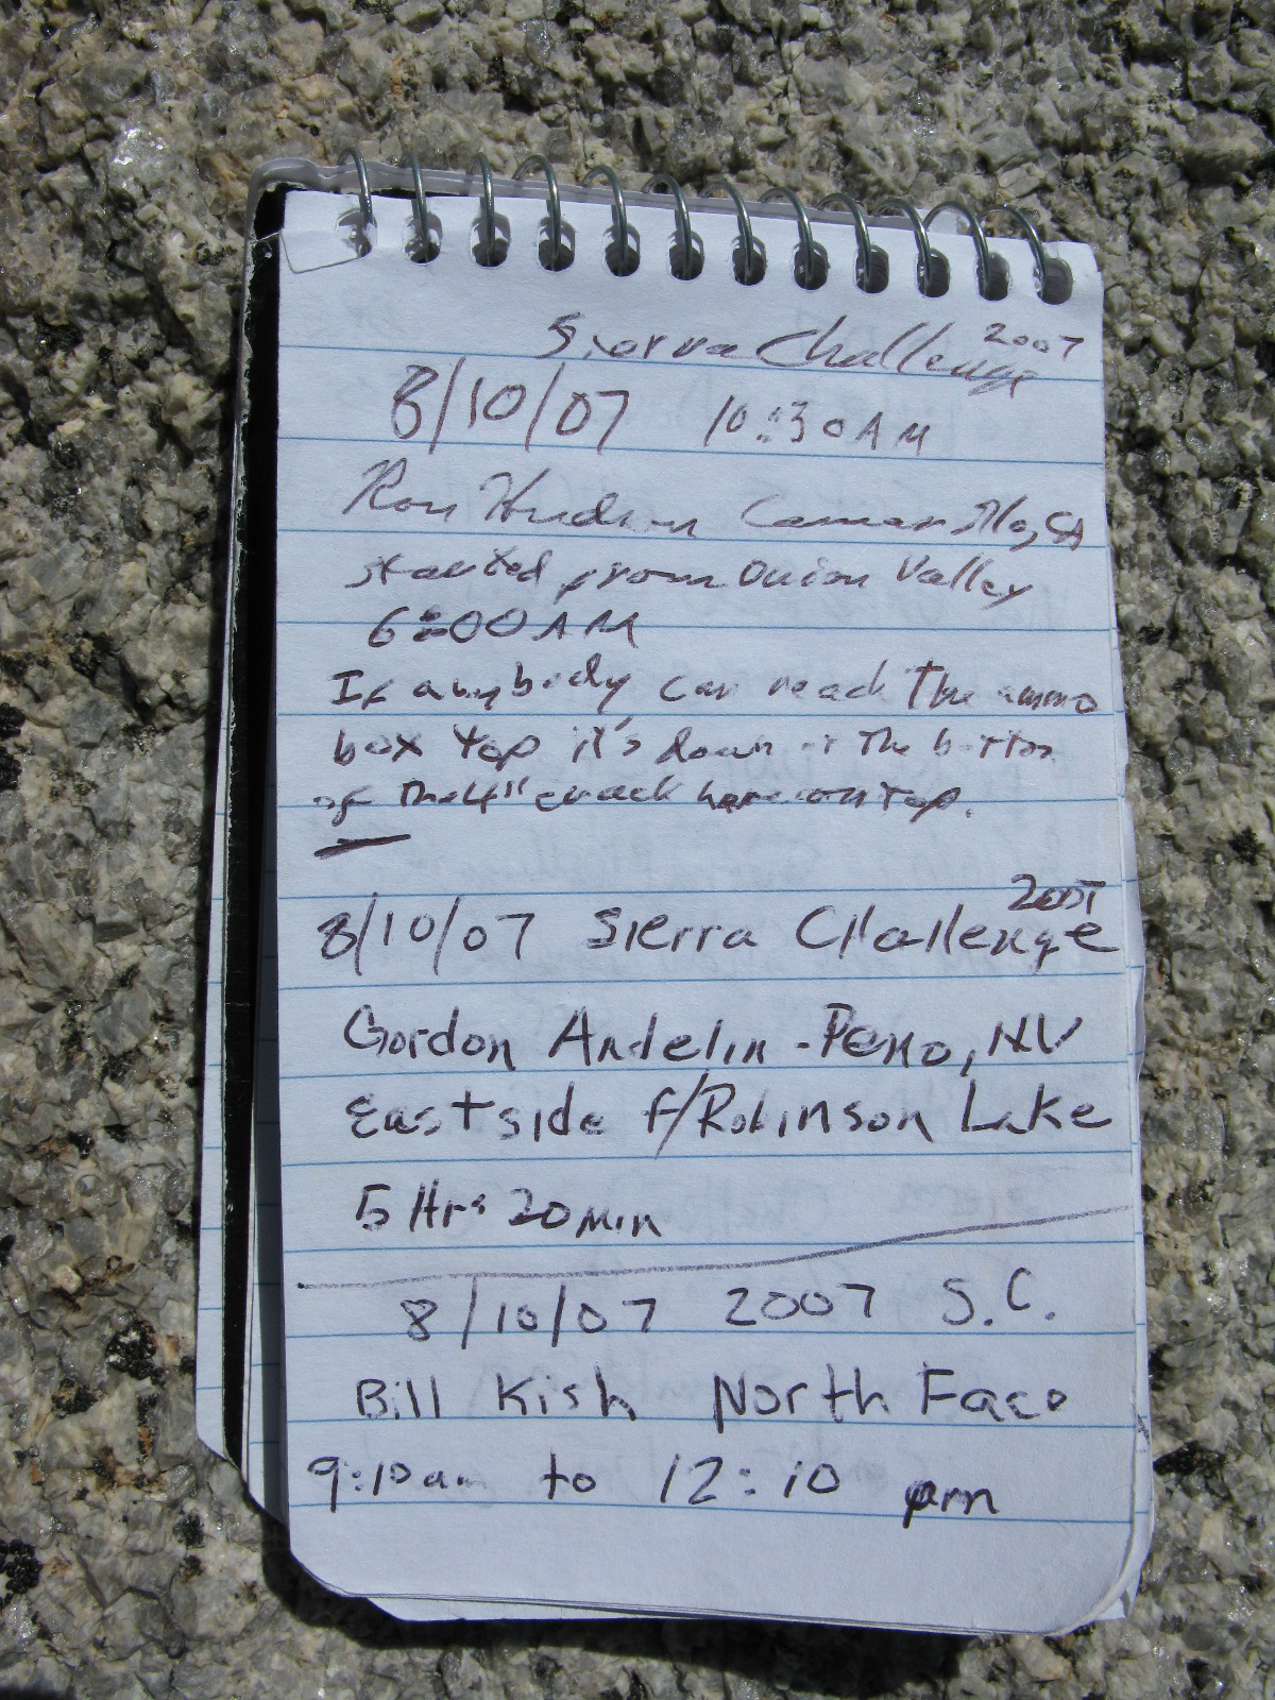 Sierra Challenge 2007
8/10/07 10:30 AM
Ron Hudson Camarillo, CA
started from Onion Valley
6:00 AM
If anybody can reach the ammo
box top it's down at the bottom
of the 4" crack here on top.
8/10/07 Sierra Challenge 2007
Gordon Andelin - Reno, NV
East side f/Robinson Lake
5 Hrs 20 min
8/10/07 2007 S.C.
Bill Kish North Face
9:10 am to 12:10 pm